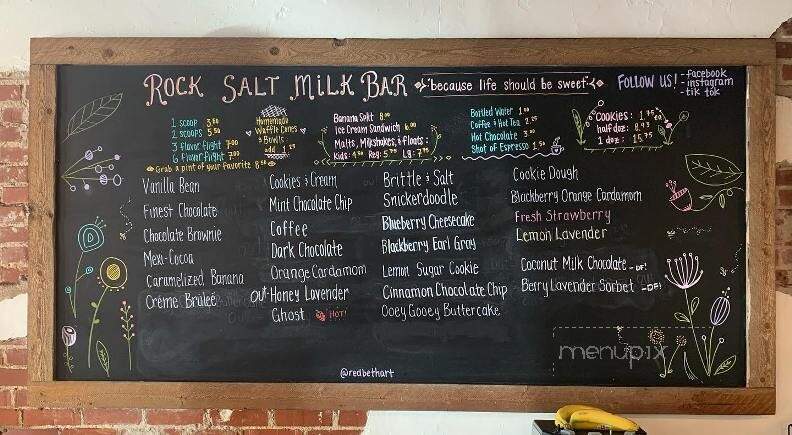 ROCK SALT MILK BAR
"because life should be sweet"
FOLLOW US!
- facebook
- instagram
- tik tok
1 scoop 3.50
2 scoops 5.50
3 flavor flight 7.00
6 flavor flight
Grab a pint of your favorite 8.50
Homemade
Waffle Cones
& Bowls
add 1.25
Banana Split 8.00
Ice Cream Sandwich 6.00
Malts, Milkshakes, & Floats:
Kids: 4.50 Reg: 5.75 Lg: 7.50
Bottled Water 1.00
Coffee & Hot Tea 2.25
Hot Chocolate 3.00
Shot of Espresso 1.50
Cookies: 1.75
half doz: 8.95
1 doz: 15.75
Vanilla Bean
Finest Chocolate
Chocolate Brownie
Mexi-Cocoa
Caramelized Banana
Créme Brûleé
Cookies & Cream
Mint Chocolate Chip
Coffee
Dark Chocolate
Orange Cardamom
out-Honey Lavender
Ghost HOT!
Brittle & Salt
Snickerdoodle
Blueberry Cheesecake
Blackberry Earl Gray
Lemon Sugar Cookie
Cinnamon Chocolate Chip
Ooey Gooey Buttercake
Cookie Dough
Blackberry Orange Cardamom
Fresh Strawberry
Lemon Lavender
Coconut Milk Chocolate - DF!
Berry Lavender Sorbet - DF!
@redbethart
menupix